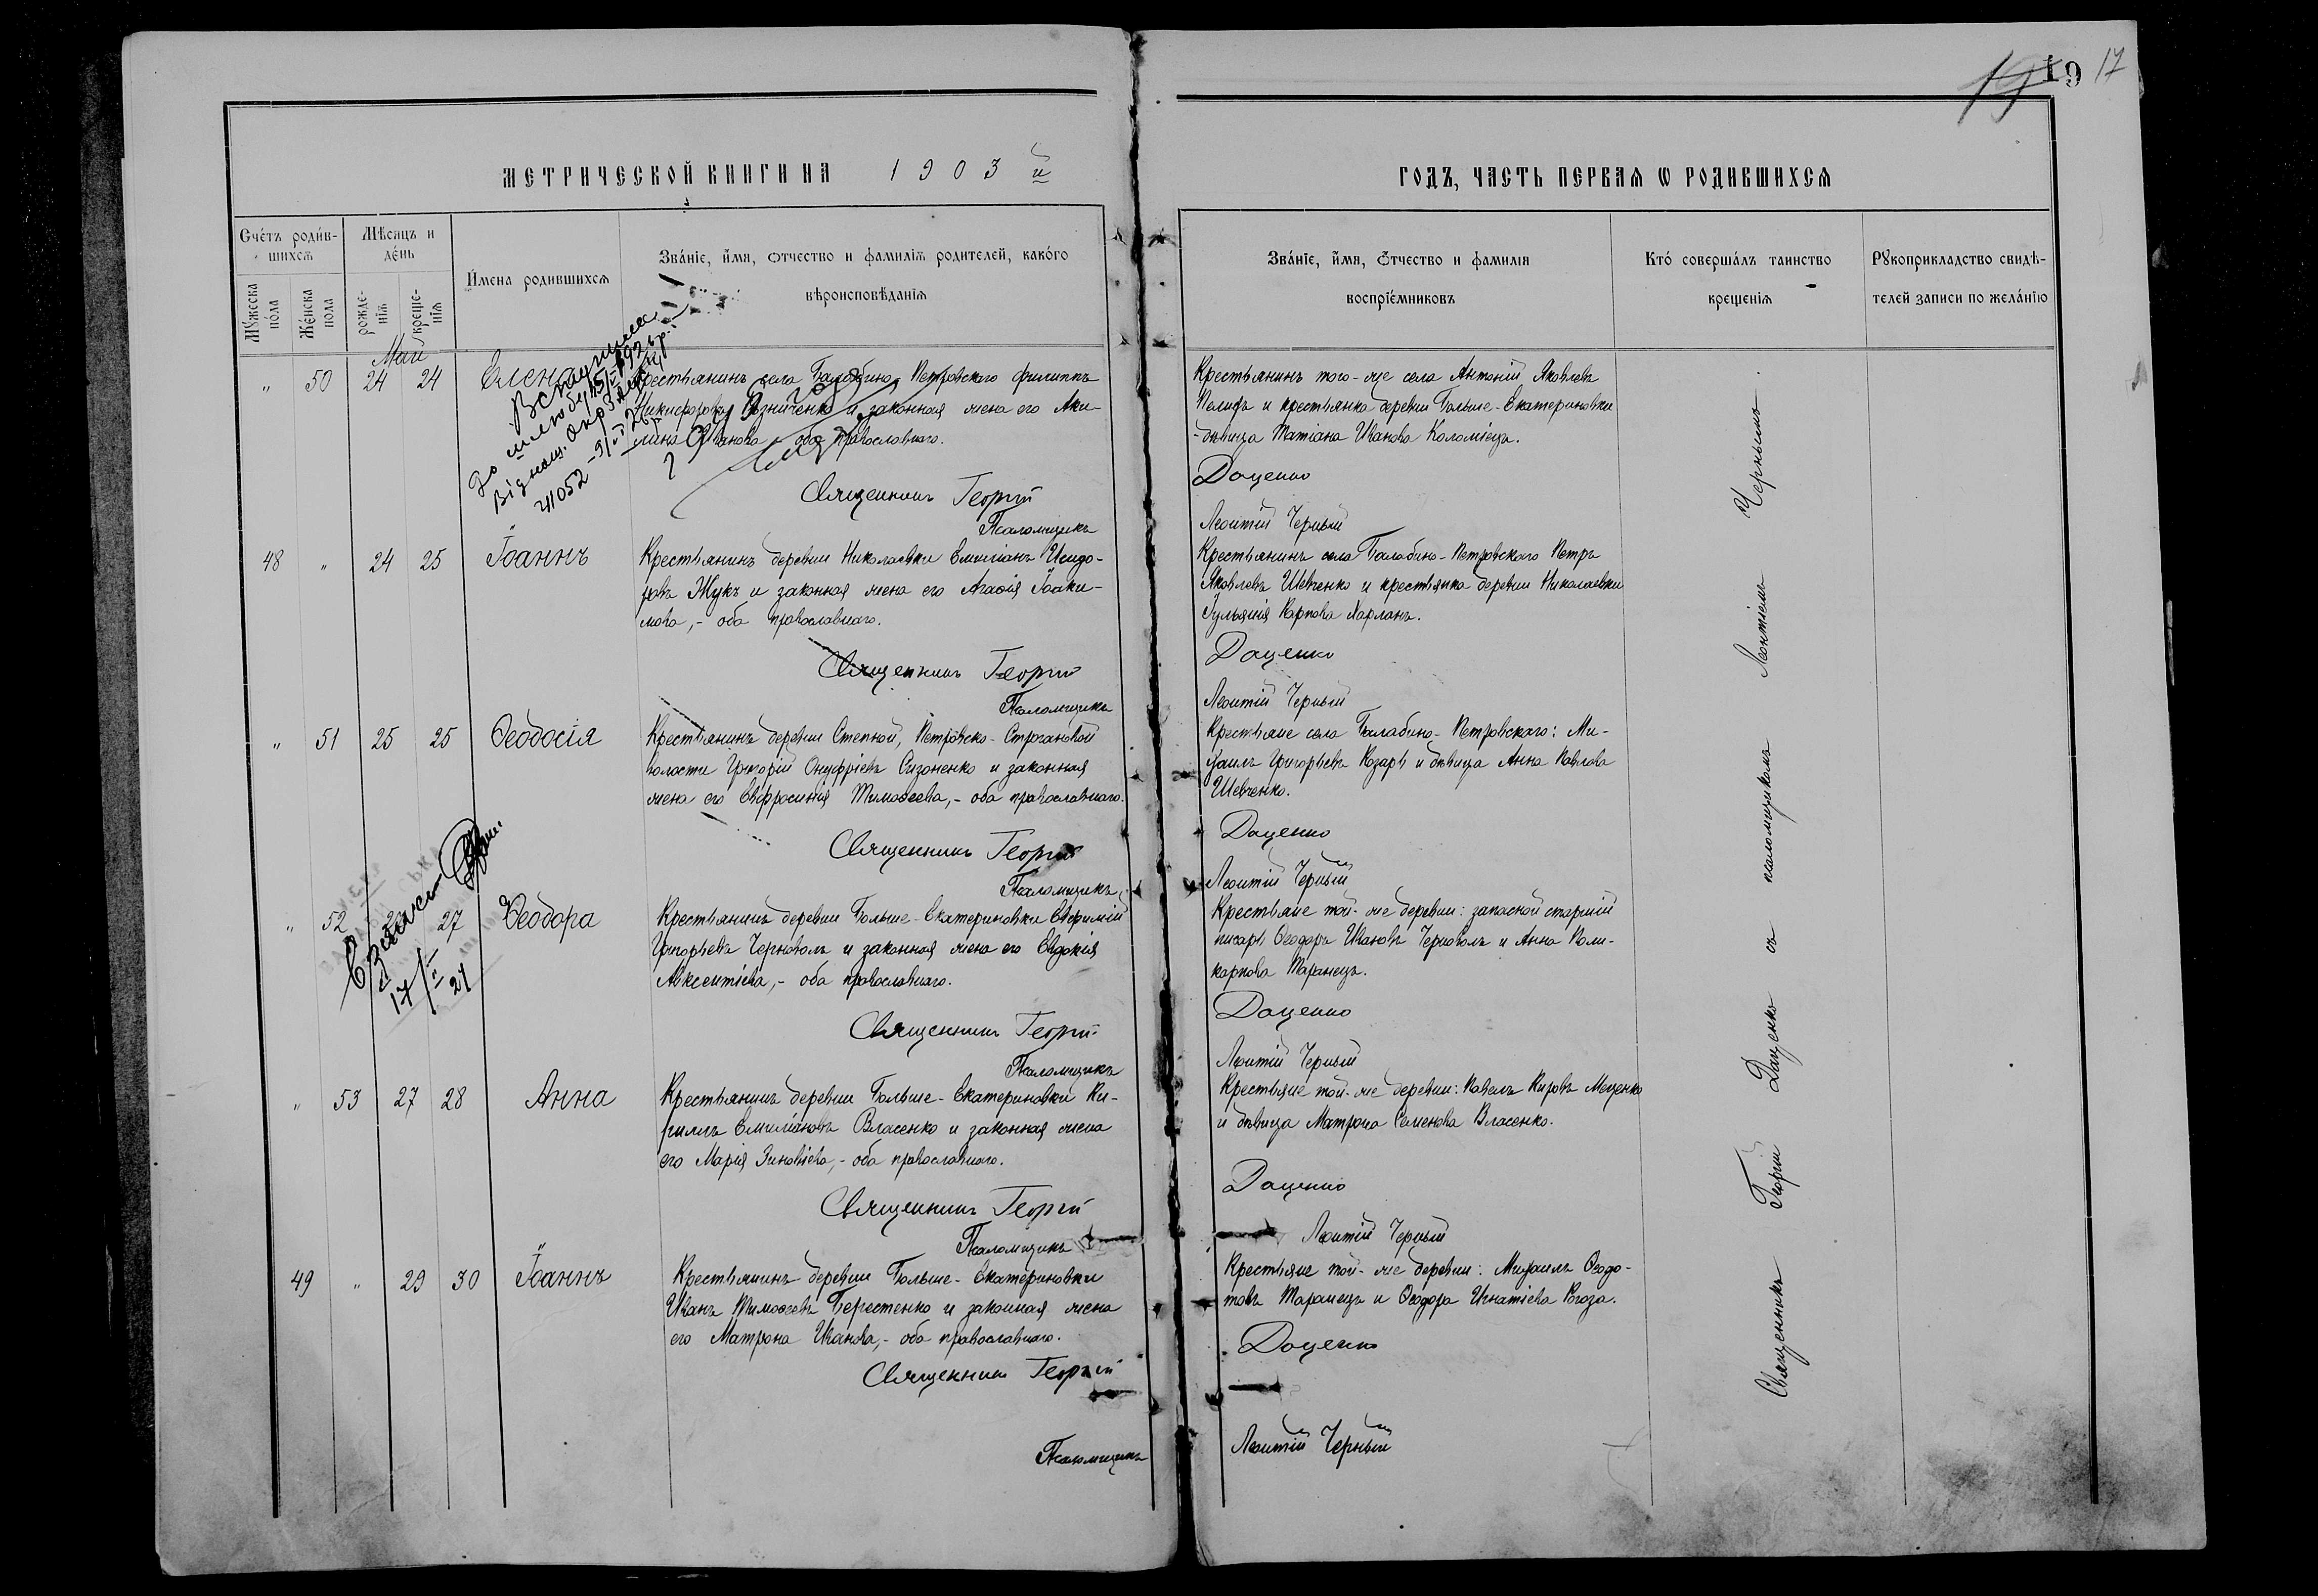 19 19 17
МЕТРИЧЕСКОЙ КНИГИ НА 1903 й
ГОДЪ, ЧАСТЬ ПЕРВАЯ Ѡ РОДИВШИХСЯ
Счетъ родив-
шихся
Мѣсяцъ и
день
Мужеска
пола
Женска
пола
рожде-
нія
креще-
нія
Имена родившихся
Званіе, имя, отчество и фамилія родителей, какого
вѣроисповѣданія
Званіе, имя, отчество и фамилія
воспріемниковъ
Кто совершалъ таинство
крещенія
Рукоприкладство свидѣ-
телей записи по желанію
Май
" 50 24 24 Елена
Крестьянинъ села Балабино-Петровскаго Филиппъ
Никифоровъ Рѣзниченко и законная жена его Аки-
лина Иванова, оба православнаго.
Священникъ Георгій
Псаломщикъ
Крестьянинъ того-же села Антоній Яковлевъ
и крестьянка деревни Больше-Екатериновки
-дѣвица Татіана Иванова Коломіецъ.
Доценко
Леонтій Черный
До шлюбу 15/I-1926 р.
Відмощ. Окр
41052 - 9/II 26
48 " 24 25 Іоаннъ
Крестьянинъ деревни Николаевки Емиліанъ Исидо-
ровъ Жукъ и законная жена его Агафія Іоаки-
мова,- оба православнаго.
Священникъ Георгій
Псаломщикъ
Крестьянинъ села Балабино-Петровскаго Петръ
Яковлевъ Шевченко и крестьянка деревни Николаевки
Іульянія Карпова Харланъ.
Доценко
Леонтій Черный
" 51 25 25 Ѳеодосія
Крестьянинъ деревни Степной, Петровско-Строгановой
волости Григорій Онуфріевъ Сизоненко и законная
жена его Евфросинія Тимоѳеева,- оба православнаго.
Священникъ Георгій
Псаломщикъ
Крестьяне села Балабино-Петровскаго: Ми-
хаилъ Григорьевъ Козарь и дѣвица Анна Павлова
Шевченко.
Доценко
Леонтій Черный
" 52 26 27 Ѳеодора
Крестьянинъ деревни Больше-Екатериновки Евфимій
Григорьевъ Черноволъ и законная жена его Евдокія
Авксентіева,- оба православнаго.
Священникъ Георгій
Псаломщикъ
Крестьяне той-же деревни: запасной старшій
писарь Ѳеодоръ Ивановъ Черноволъ и Анна Поли-
карпова Таранецъ.
Доценко
Леонтій Черный
17/II 21
" 53 27 28 Анна
Крестьянинъ деревни Больше-Екатериновки Ки-
риллъ Емиліановъ Власенко и законная жена
его Марія Зиновіева,- оба православнаго.
Священникъ Георгій
Псаломщикъ
Крестьяне той-же деревни: Павелъ Кировъ Маценко
и дѣвица Матрона Семенова Власенко.
Доценко
Леонтій Черный
49 " 29 30 Іоаннъ
Крестьянинъ деревни Больше-Екатериновки
Иванъ Тимоѳеевъ Берестенко и законная жена
его Матрона Иванова,- оба православнаго.
Священникъ Георгій
Псаломщикъ
Крестьяне той-же деревни: Михаилъ Ѳеодо-
товъ Таранецъ и Ѳеодора Игнатіева Рогоза.
Доценко
Леонтій Черный
Священникъ Георгій Даценко съ псаломщикомъ Леонтіемъ Чернымъ.